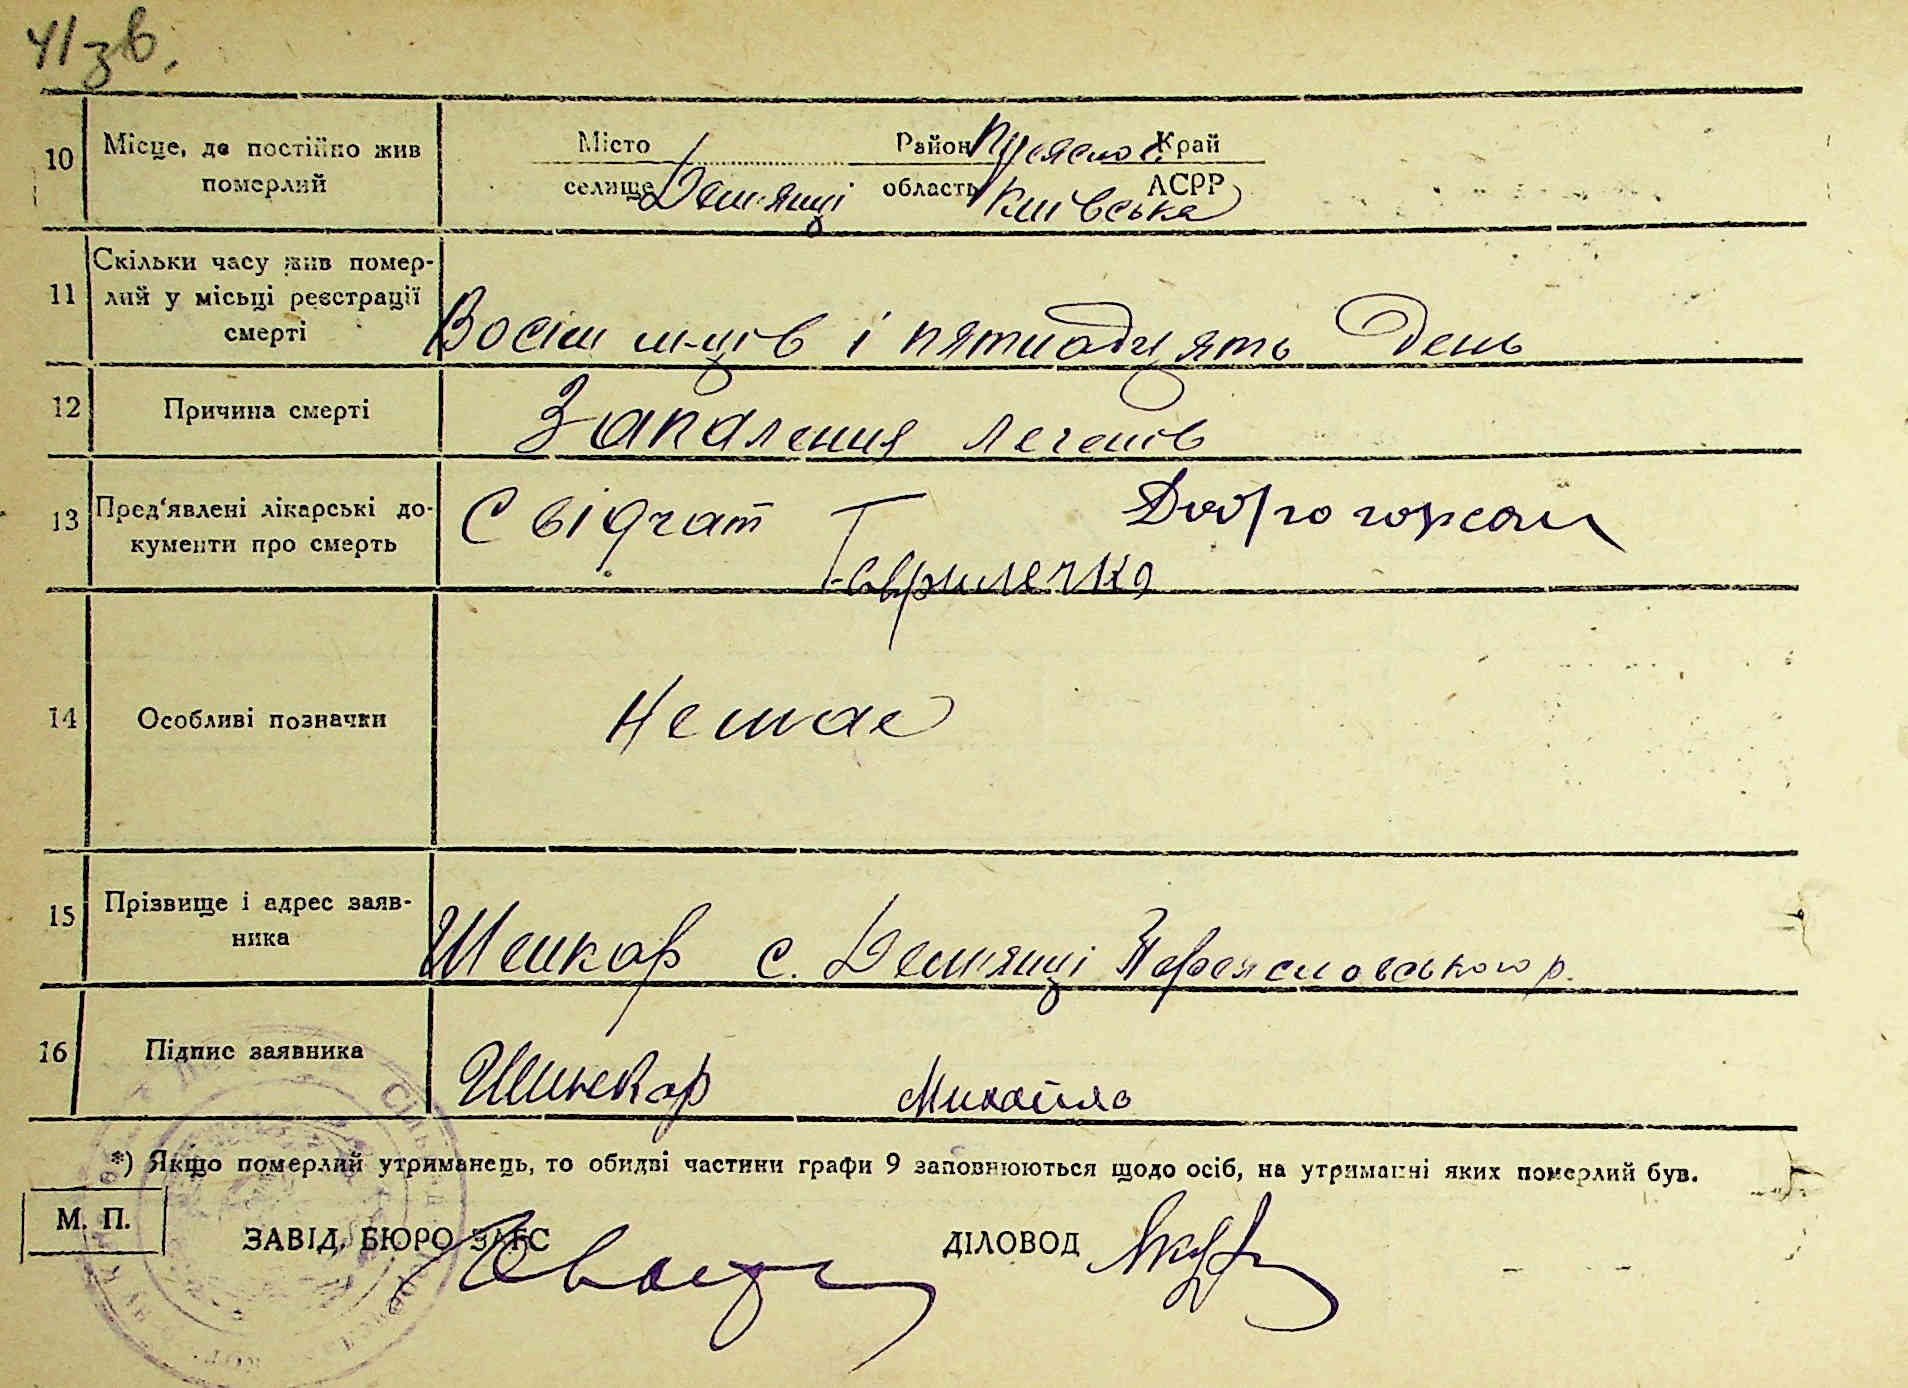 41 зв.
10 Місце, де постійно жив померлий
Місто Район Переяслов. Край
селище Демʼянці область Київська АСРР
11 Скільки часу жив помер-
лий у місьці реєстрації
смерті
Восім м-ців і пятнадцять день
12 Причина смерті Запалення легенів
13 Пред'явлені лікарські до-
кументи про смерть
Свідчат Доброгорсом
Гаврилечко
14 Особливі позначки Немає
15 Прізвище і адрес заяв-
ника
Шенкар с. Демʼянці Переясловського р.
16 Підпис заявника Шинкар Михайло
*) Якщо померлий утриманець, то обидві частини графи 9 заповнюються щодо осіб, на утриманні яких померлий був.
М. П.
ЗАВІД. БЮРО ЗАГС ДІЛОВОД